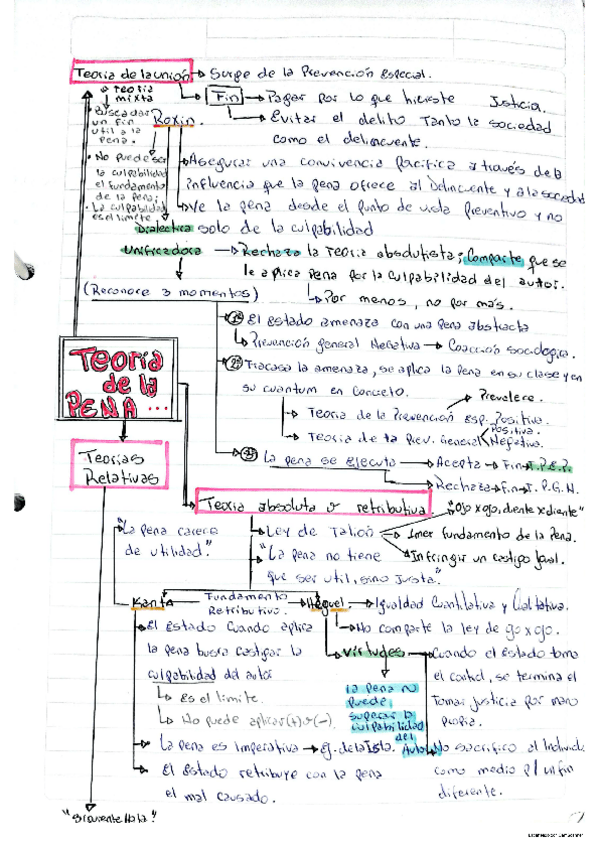 Teoria de la unión → Surge de la Prevención Especial.
teoría mixta
Fin → Pagar por lo que hiciste Justicia.
→ Evitar el delito Tanto la sociedad
como el delincuente.
• Buscadar
un fin
util a la
pena.
Roxin.
• No puede ser
la culpabilidad
el fundamento
de la pena;
• La culpabilidad
es el límite
→ Asegurar una convivencia Pacifica a través de la
influencia que la pena ofrece al Delincuente y a la sociedad
→ Ve la pena desde el punto de vista Preventivo y no
solo de la culpabilidad
Dialectica
Unificadora → Rechaza la Teoria absolutista; Comparte que se
le aplica Pena por la culpabilidad del autor.
↳ Por menos, no por más.
(Reconoce 3 momentos)
El Estado amenaza con una pena abstracta
↳ Prevención general Negativa → Coacción sociologica.
Fracasa la amenaza, se aplica la pena en su clase y en
su cuantum en concreto.
Prevalece.
→ Teoria de la Prevención Esp. Positiva.
→ Teoria de la Prev. General
Positiva.
Negativa.
La pena se Ejecuta → Acepta → Fin T.P.E.P.
Rechaza → Fin T.P.G.N.
Teoria
de la
PENA ...
Teorias
Relativas
Teoria absoluta o retributiva
"La pena carece
de utilidad."
→ Ley de Talión
"Ojo x ojo, diente x diente"
→ 1mer fundamento de la Pena.
→ Infringir un castigo Igual.
→ "La pena no tiene
que ser util, sino Justa."
Kant
Fundamento
Retributivo.
Heguel → Igualdad Cuantitativa y Cualitativa.
→ No comparte la ley de ojo x ojo.
→ El Estado cuando aplica
la pena busca castigar la
culpabilidad del autor
↳ Es el limite.
↳ No puede aplicar (+) o (-).
→ La pena es Imperativa → Ej. de la Isla.
→ El Estado retribuye con la pena
el mal causado.
→ Virtudes
La pena no
puede
superar la
culpabilidad
del
Autor
→ Cuando el Estado toma
el control, se termina el
tomar justicia por mano
propia.
No sacrifico al Individuo
como medio p/ un fin
diferente.
"Siguiente Hoja"